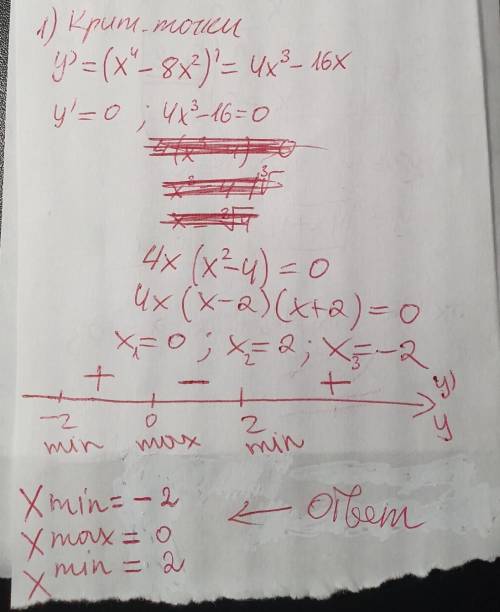 1) Крит. точки
y' = (x⁴ - 8x²)' = 4x³ - 16x
y' = 0 ; 4x³ - 16 = 0
4x (x² - 4) = 0
4x (x - 2)(x + 2) = 0
x₁ = 0 ; x₂ = 2 ; x₃ = -2
+ − + y'
-2 0 2 y
min max min
X min = - 2
X max = 0 ← Ответ
X min = 2